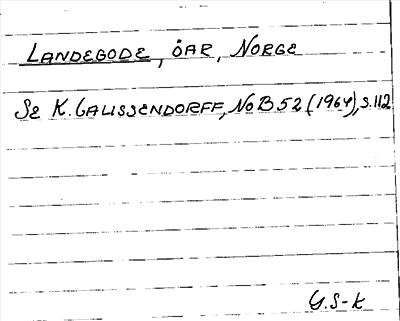 LANDEGODE, ÖAR, NORGE
SE K. CALISSENDORFF, NoB 52 (1964), S. 112
G.S-K